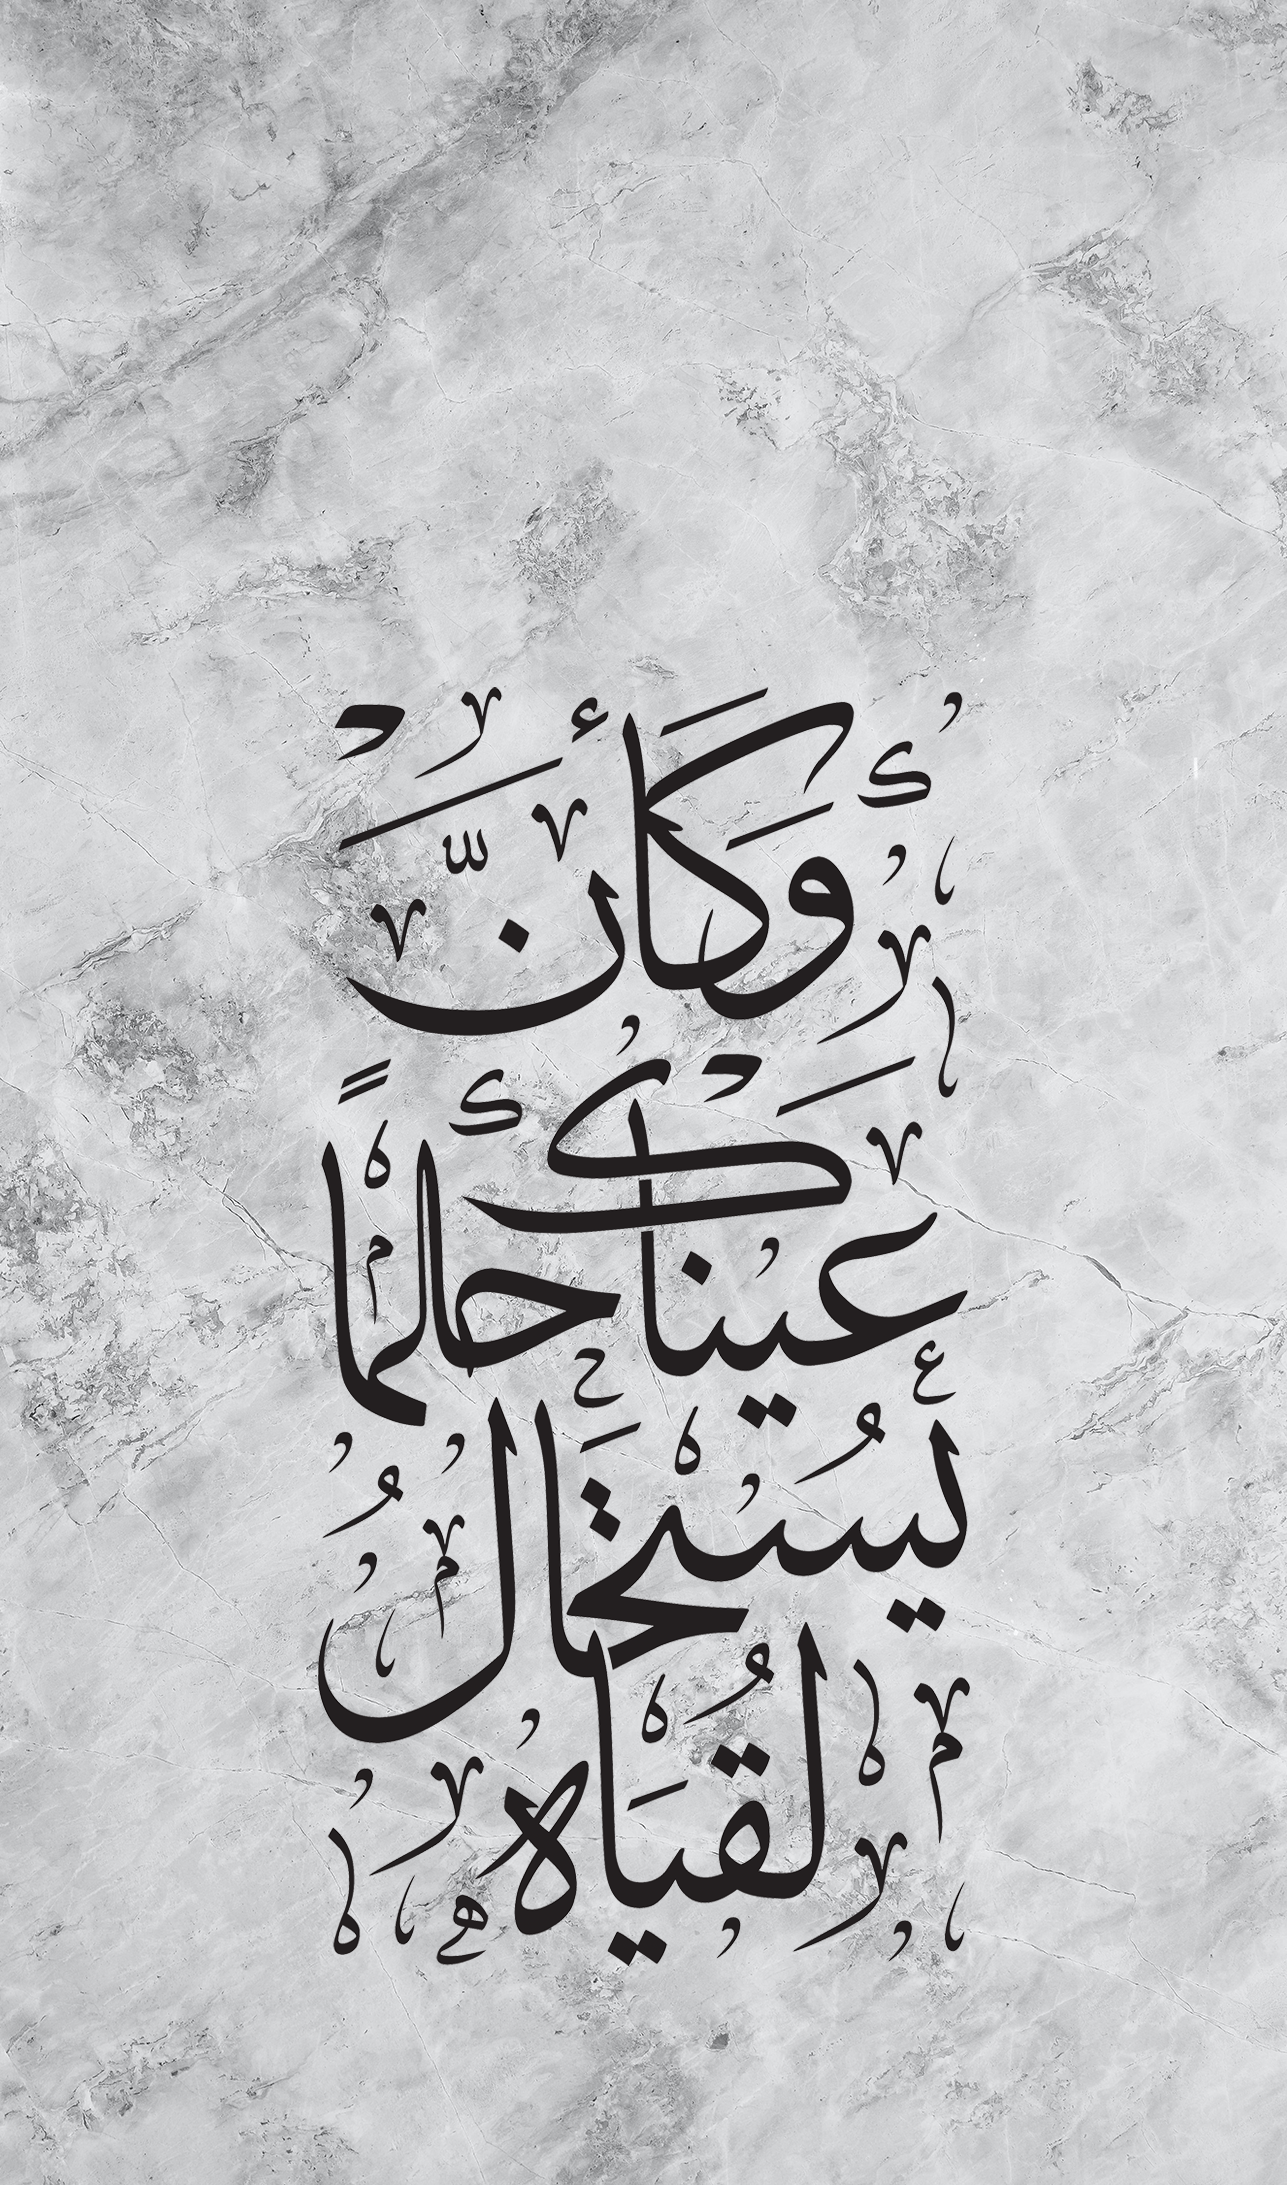 وَكَأَنَّ
عيناكَ حلمًا
يُستحَالُ
لُقيَاه